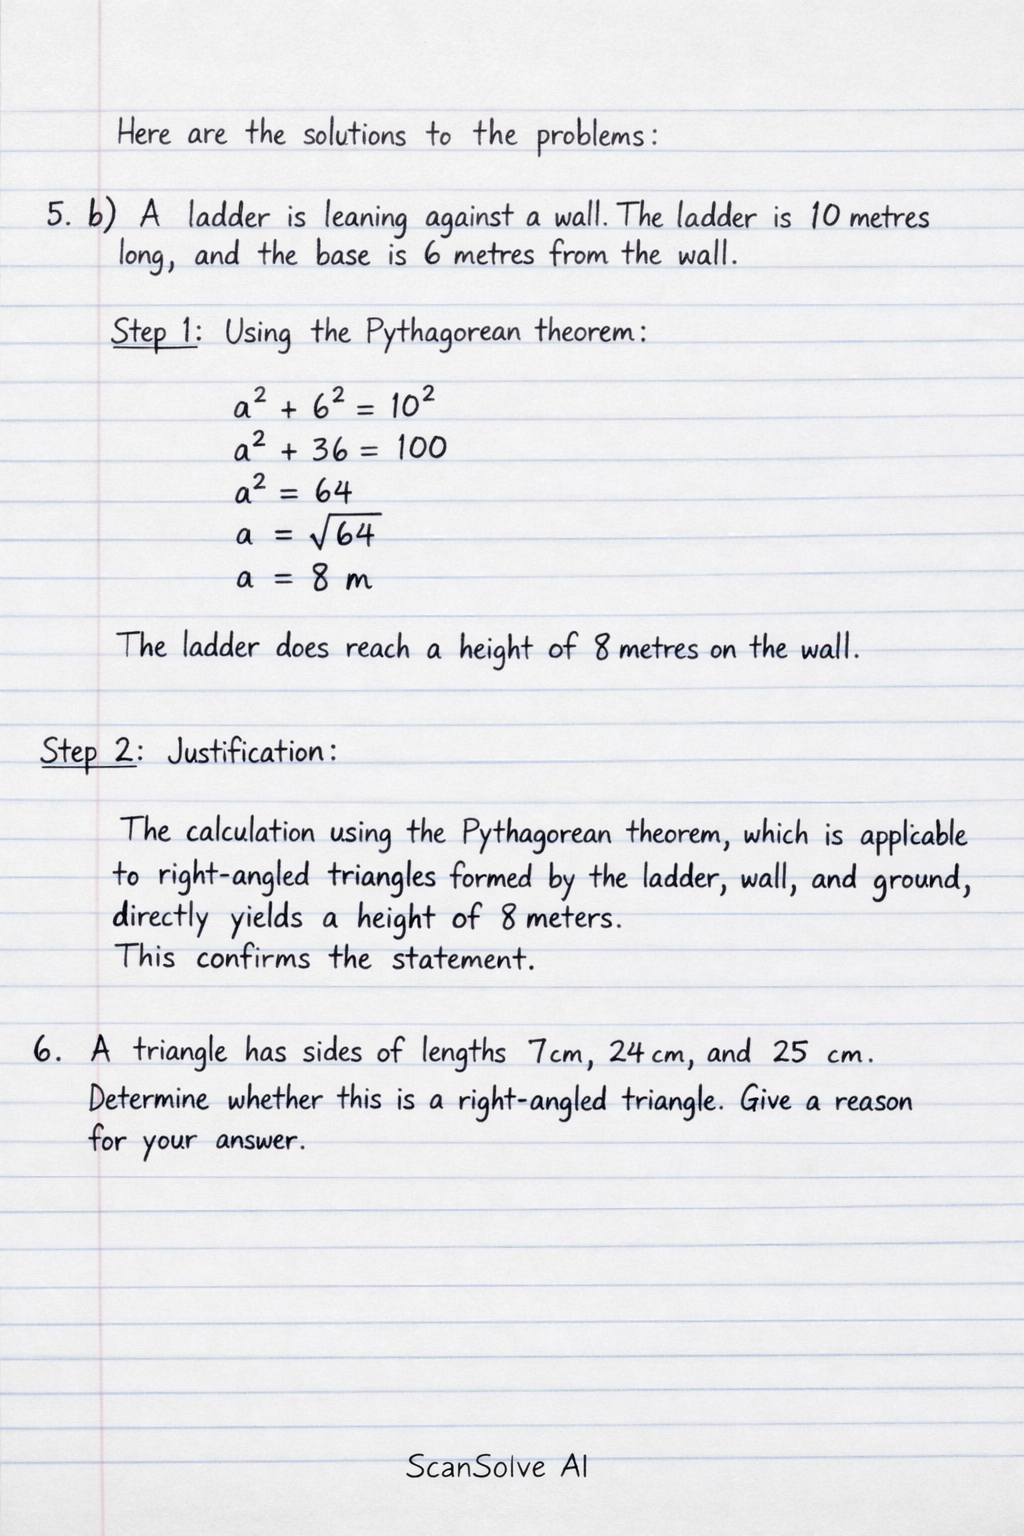 Here are the solutions to the problems:
5. b) A ladder is leaning against a wall. The ladder is 10 metres
long, and the base is 6 metres from the wall.
Step 1: Using the Pythagorean theorem:
a² + 6² = 10²
a² + 36 = 100
a² = 64
a = √64
a = 8 m
The ladder does reach a height of 8 metres on the wall.
Step 2: Justification:
The calculation using the Pythagorean theorem, which is applicable
to right-angled triangles formed by the ladder, wall, and ground,
directly yields a height of 8 meters.
This confirms the statement.
6. A triangle has sides of lengths 7cm, 24 cm, and 25 cm.
Determine whether this is a right-angled triangle. Give a reason
for your answer.
ScanSolve AI